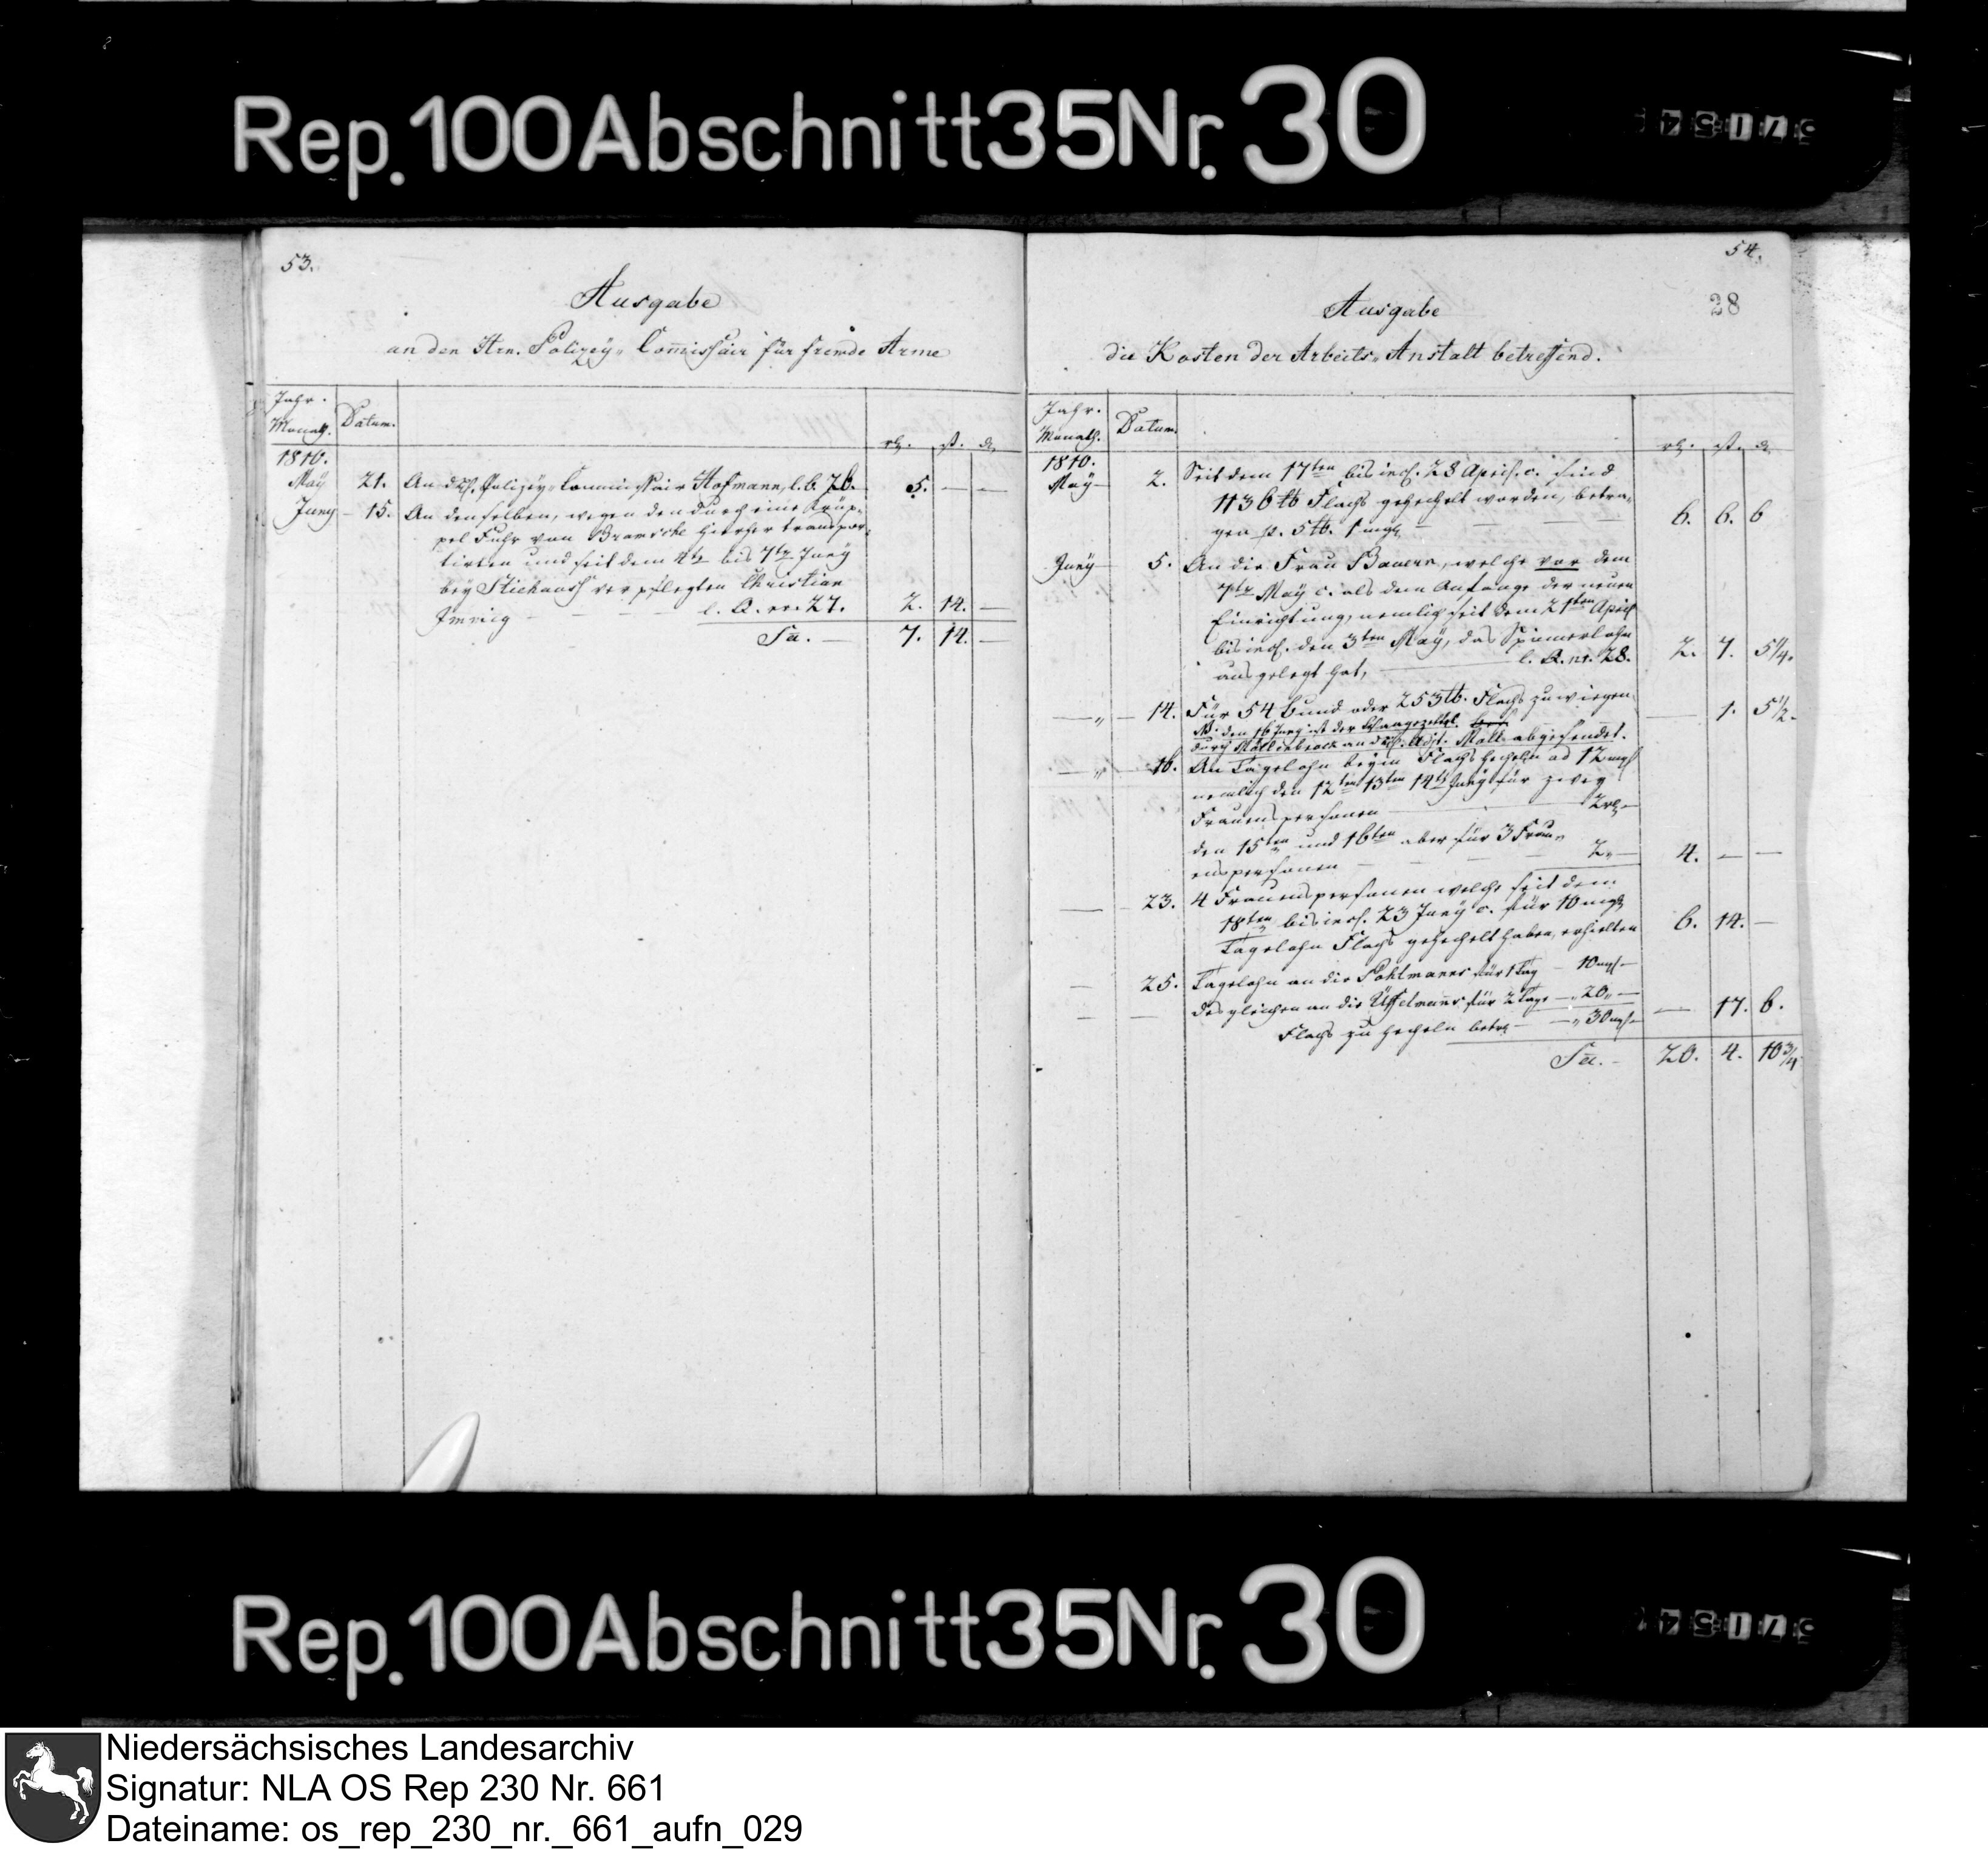 Rep. 100 Abschnitt 35 Nr. 30
53.
Ausgabe
an den Hrn. Polizey-Comissair für fremde Arme
Jahr.
Monath. Datum.
rtl. ß. d.
1810.
May 21. An Polizey-Commissair Hofmann, l. b. 5. — —
Juny — 15. An denselben, wegen den durch eine Krüp-
pel Fuhr von Bramsche hierher transpor-
tirten und seit dem 4t bis 7tn Juny
bey verpflegten Christian
l. Q. nr. 27. 2. 14. —
Sa. — 7. 14. —
54.
28
Ausgabe
die Kosten der Arbeits-Anstalt betreffend.
Jahr.
Monath. Datum.
rtl. ß. d.
1810.
May 2. Seit dem 17ten bis incl. 28 April. c. sind
1130 tb Flachs gehechelt worden, betra-
gen p. 5 tb. 1 mgl — 6. 6. 6
Juny 5. An die Frau Bauern, welche vor dem
May c. als dem Anfange der neuen
Einrichtung, nemlich seit dem 21ten April
bis incl. den 3ten May, das Spinnerlohn
ausgelegt hat, — l. Q. nr. 28. 2. 7. 5 1/4.
— " — 14. Für 54 Bund oder 253 tb. Flachs zu wiegen — 1. 5 1/2.
NB. den 16 Juny ist der
durch an abgesendet.
— " — 16. An Tagelohn beym Flachs hecheln ad 12 mgl
nemlich den 12ten 13ten 14ten Juny für zwey
Frauenspersonen — 2 rtl. —
den 15ten und 16ten aber für 3 Frau-
enspersonen — 2 " — 4. — —
— 23. 4 Frauenspersonen welche seit dem
18ten bis incl. 23 Juny c. für 10 mgl
Tagelohn Flachs gehechelt haben, erhielten 6. 14. —
— 25. Tagelohn an die Pohlmanns für 1 Tag — 10 mgl —
— — desgleichen an die Üffelmanns für 2 Tage — " 20 " —
Flachs zu hecheln betr. — " 30 mgl — — 17. 6.
Sa. — 20. 4. 10 3/4
Rep. 100 Abschnitt 35 Nr. 30
Niedersächsisches Landesarchiv
Signatur: NLA OS Rep 230 Nr. 661
Dateiname: os_rep_230_nr._661_aufn_029